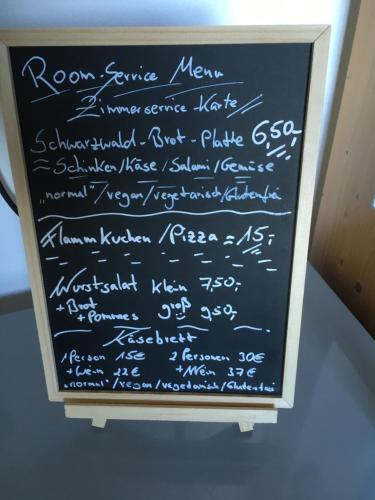 Room-Service Menu
Zimmerservice Karte
Schwarzwald-Brot-Platte 6,50.-
= Schinken/Käse/Salami/Gemüse
„normal"/vegan/vegetarisch/Glutenfrei
Flammkuchen/Pizza = 15,-
Wurstsalat klein 7,50,-
+ Brot groß 9,50,-
+ Pommes
Käsebrett
1 Person 15€ 2 Personen 30€
+ Wein 22€ + Wein 37€
„normal"/vegan/vegetarisch/Glutenfrei